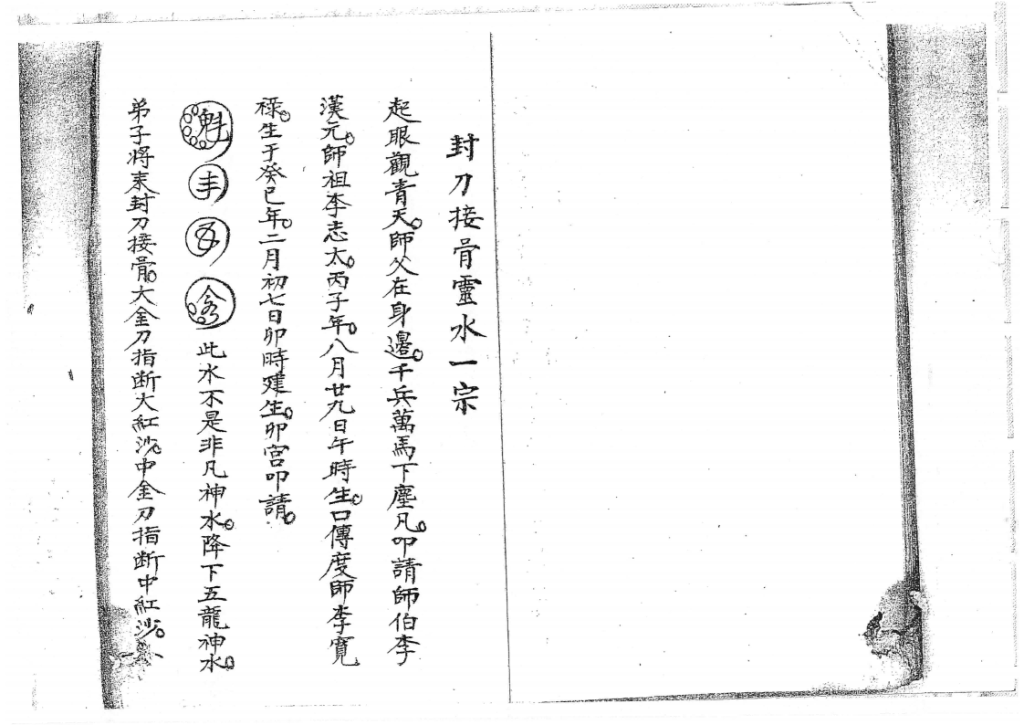 封刀接骨靈水一宗
起眼觀青天。師父在身邊。千兵萬馬下塵凡。叩請師伯李
漢元。師祖李志太。丙子年。八月廿九日午時生。口傳度師李寬
祿。生于癸巳年。二月初七日卯時建生。卯宮叩請。
魁 此水不是非凡神水。降下五龍神水。
弟子將來封刀接骨。大金刀指断大紅沙。中金刀指断中紅沙。